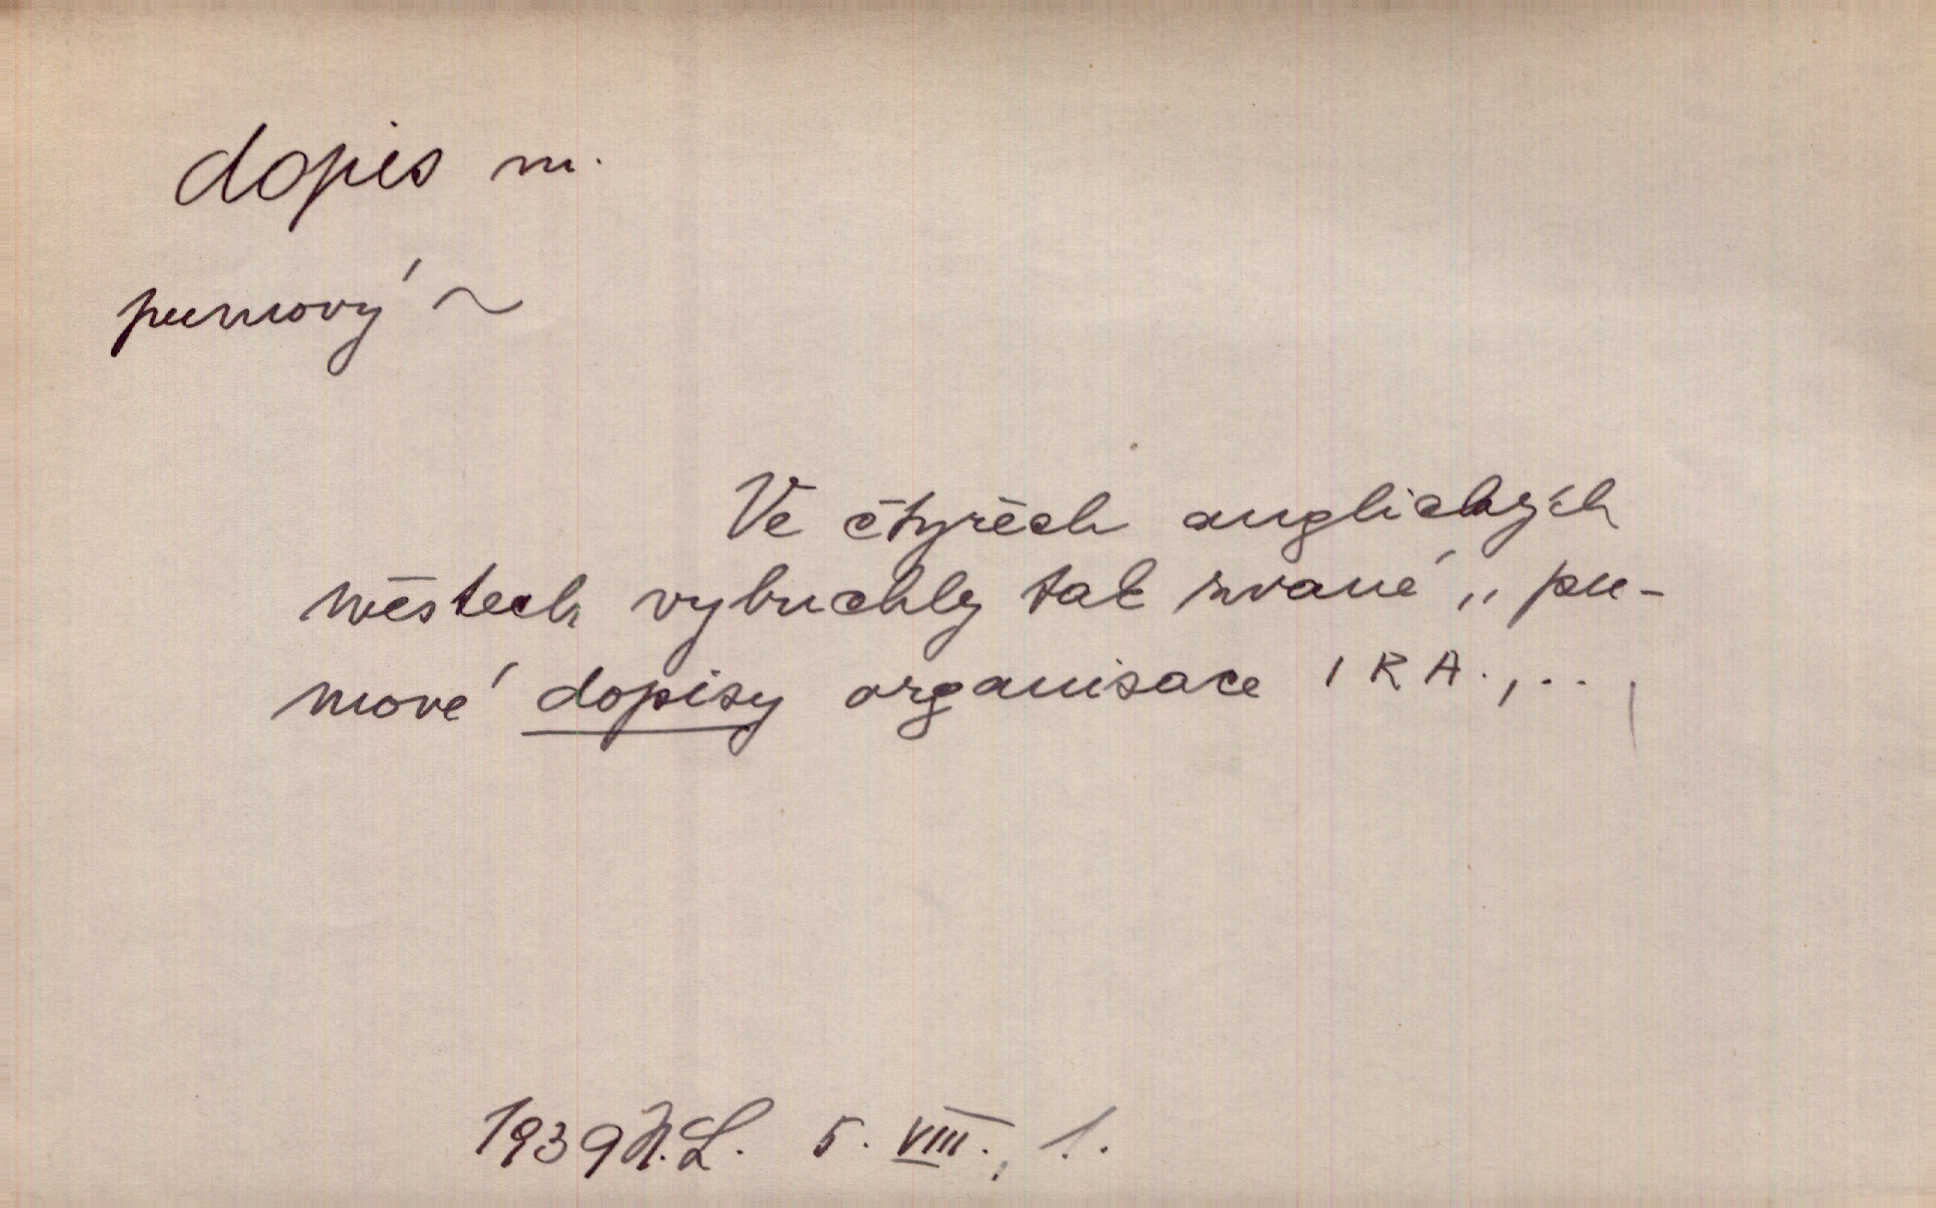 dopis m.
pumový ~
Ve čtyřech anglických
městech vybuchly tak zvané „ pu-
mové dopisy organisace IRA.,...
1939 N.L. 5. VIII., 1.